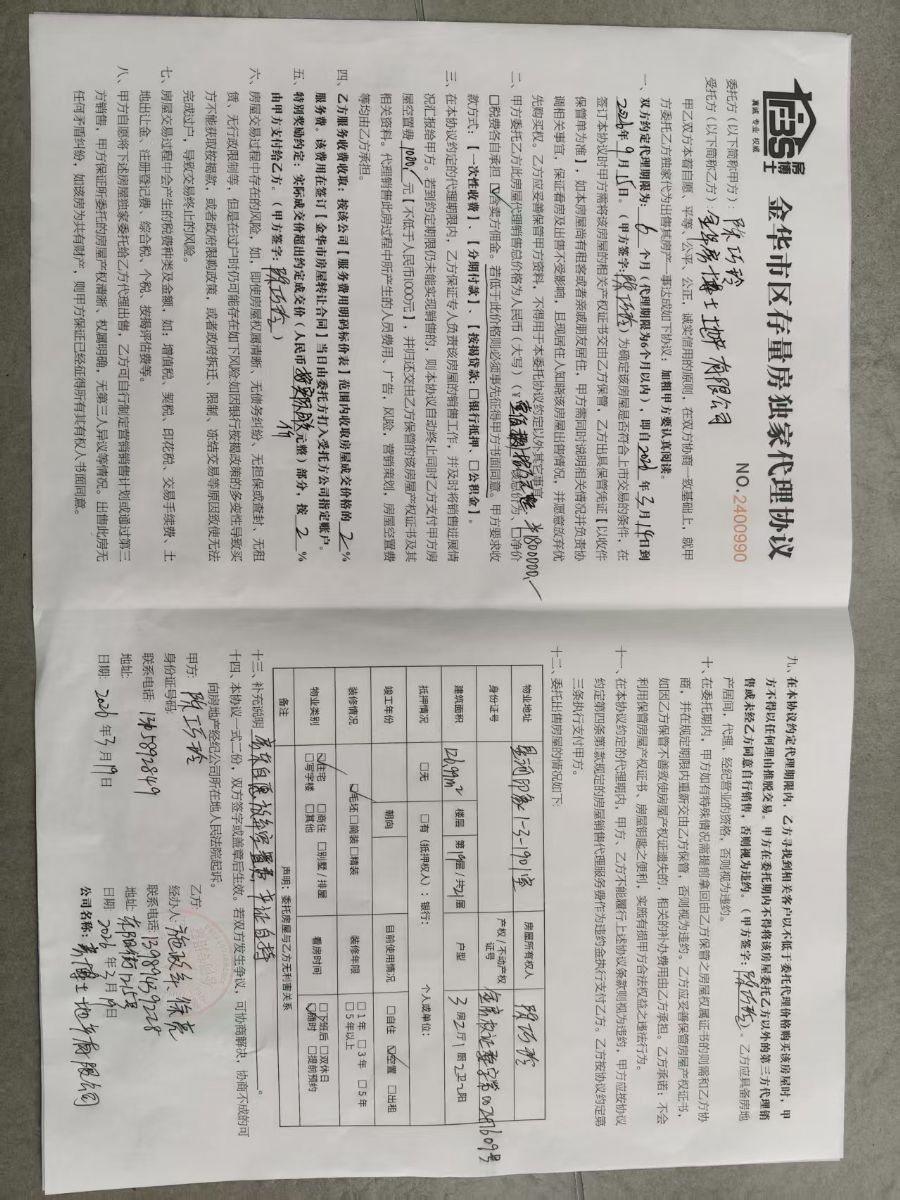 房博士
真诚 专业 权威
金华市区存量房独家代理协议
NO.2400990
委托方（以下简称甲方）：陈巧玲
受托方（以下简称乙方）：金华房博士地产有限公司
甲乙双方本着自愿、平等、公平、公正、诚实信用的原则，在双方协商一致基础上，就甲
方委托乙方独家代为出售其房产，事达成如下协议：加粗甲方要认真阅读。
一、双方约定代理期限为：6个月（代理期限为6个月以内），即自2026年3月19日到
2026年9月18日。（甲方签字：陈巧玲）为确定该房屋是否符合上市交易的条件，在
签订本协议时甲方需将该房屋的相关产权证书交由乙方保管，乙方出具保管凭证【以收件
保管单为准】，如本房屋尚有租客或者亲或朋友居住，甲方需同时说明相关情况并负责协
调相关事宜，保证看房及出售不受影响，且现居住人知晓该房屋出售情况，并愿意放弃优
先购买权。乙方应妥善保管甲方资料，不得用于本委托协议约定以外其它事宜。
二、甲方委托乙方此房屋代理销售总价格为人民币（大写）（￥ 800000 该总价为、□净价
□税费各自承担 ☑含卖方佣金。若低于此价格则必须事先征得甲方书面同意。甲方要求收
款方式：【一次性收费】、【分期付款】、【按揭贷款：□银行抵押、□公积金】。
三、在本协议约定的代理期限内，乙方保证专人负责该房屋的销售工作，并及时将销售进展情
况汇报给甲方。若到约定期限仍未能实现销售的，则本协议自动终止同时乙方支付甲方房
屋空置费1000元【不低于人民币1000元】，并归还交由乙方保管的该房屋产权证书及其
相关资料。代理销售此房过程中所产生的人员费用，广告，风险，营销策划，房屋空置费
等均由乙方承担。
四、乙方服务收费收取：按该公司【服务费用明码标价表】范围内收取房屋成交价格的2%
服务费。该费用在签订【金华市房屋转让合同】当日由委托方打入受托方公司指定账户。
五、特别奖励约定：实际成交价超出约定成交价（人民币 元整）部分，按2%
由甲方支付给乙方。（甲方签字：陈巧玲）
六、房屋交易过程中存在的风险，如，即使房屋权属清晰，无债务纠纷、无担保或查封、无租
赁，无行政限制等，但是在过户时仍可能存在如下风险:如因银行按揭政策的多变性导致买
方不能获取按揭款，或者政府限购政策，或者政府拆迁、限制、冻结交易等原因致使无法
完成过户，导致交易终止的风险。
七、房屋交易过程中会产生的税费种类及金额，如：增值税、契税、印花税、交易手续费、土
地出让金、注册登记费、综合税、个税、按揭评估费等。
八、甲方自愿将下述房屋独家委托给乙方代理出售，乙方可自行制定营销销售计划或通过第三
方销售，甲方保证所委托的房屋产权清晰、权属明确，无第三人异议等情况。出售此房无
任何矛盾纠纷，如该房为共有财产，则甲方保证已经征得所有其有权人书面同意。
九、在本协议约定代理期限内，乙方寻找到相关客户以不低于委托代理价格购买该房屋时，甲
方不得以任何理由推脱交易。甲方在委托期内不得将该房屋委托乙方以外的第三方代理销
售或未经乙方同意自行销售，否则视为违约。（甲方签字：陈巧玲）。乙方应具备房地
产居间，代理，经纪营业的资格，否则视为违约。
十、在委托期内，甲方如有特殊情况需提前拿回由乙方保管之房屋权属证书的则需和乙方协
商，并在规定期限内重新交由乙方保管，否则视为违约。乙方应妥善保管房屋产权证书，
如因乙方保管不善致使房屋产权证遗失的，相关的补办费用由乙方承担。乙方承诺：不会
利用保管房屋产权证书、房屋钥匙之便利，实施有损甲方合法权益之违法行为。
十一、在本协议约定的代理期内，甲方、乙方不能履行上述协议条款则视为违约，甲方应按协议
约定第四条第1款规定的房屋销售代理服务费作为违约金执行支付乙方。乙方按协议约定第
三条执行支付甲方。
十二、委托出售房屋的情况如下:
物业地址 星河印象1-3-1901室 房屋所有权人 陈巧玲
身份证号 产权/不动产权证号 金房权证婺字第00281609号
建筑面积 126.99m² 楼层 第19层/共21层 户型 3房2厅1厨2卫2阳
抵押情况 □无 □有（抵押权人）：银行： 个人或单位：
竣工年份 朝向 目前使用情况 □自住 ☑空置 □出租
装修情况 ☑毛坯 □简装 □精装 装修年限 □1年 □3年 □5年 □5年以上
物业类别 ☑住宅 □商住 □别墅/排屋 □写字楼 □其他 看房时间 □下班后 □双休日 ☑随时 □提前预约
备注 声明：委托房屋与乙方无利害关系
十三、补充说明 房东自愿放弃空置费 产证自持。
十四、本协议一式二份，双方签字或盖章后生效。若双方发生争议，可协商解决，协商不成的可
向房地产经纪公司所在地人民法院起诉。
甲方：陈巧玲
身份证号码:
联系电话:
地址:
日期：2026年3月19日
乙方：
经办人:
联系电话:13989439228
地址:
日期：2026年3月19日
公司名称：房博士地产有限公司